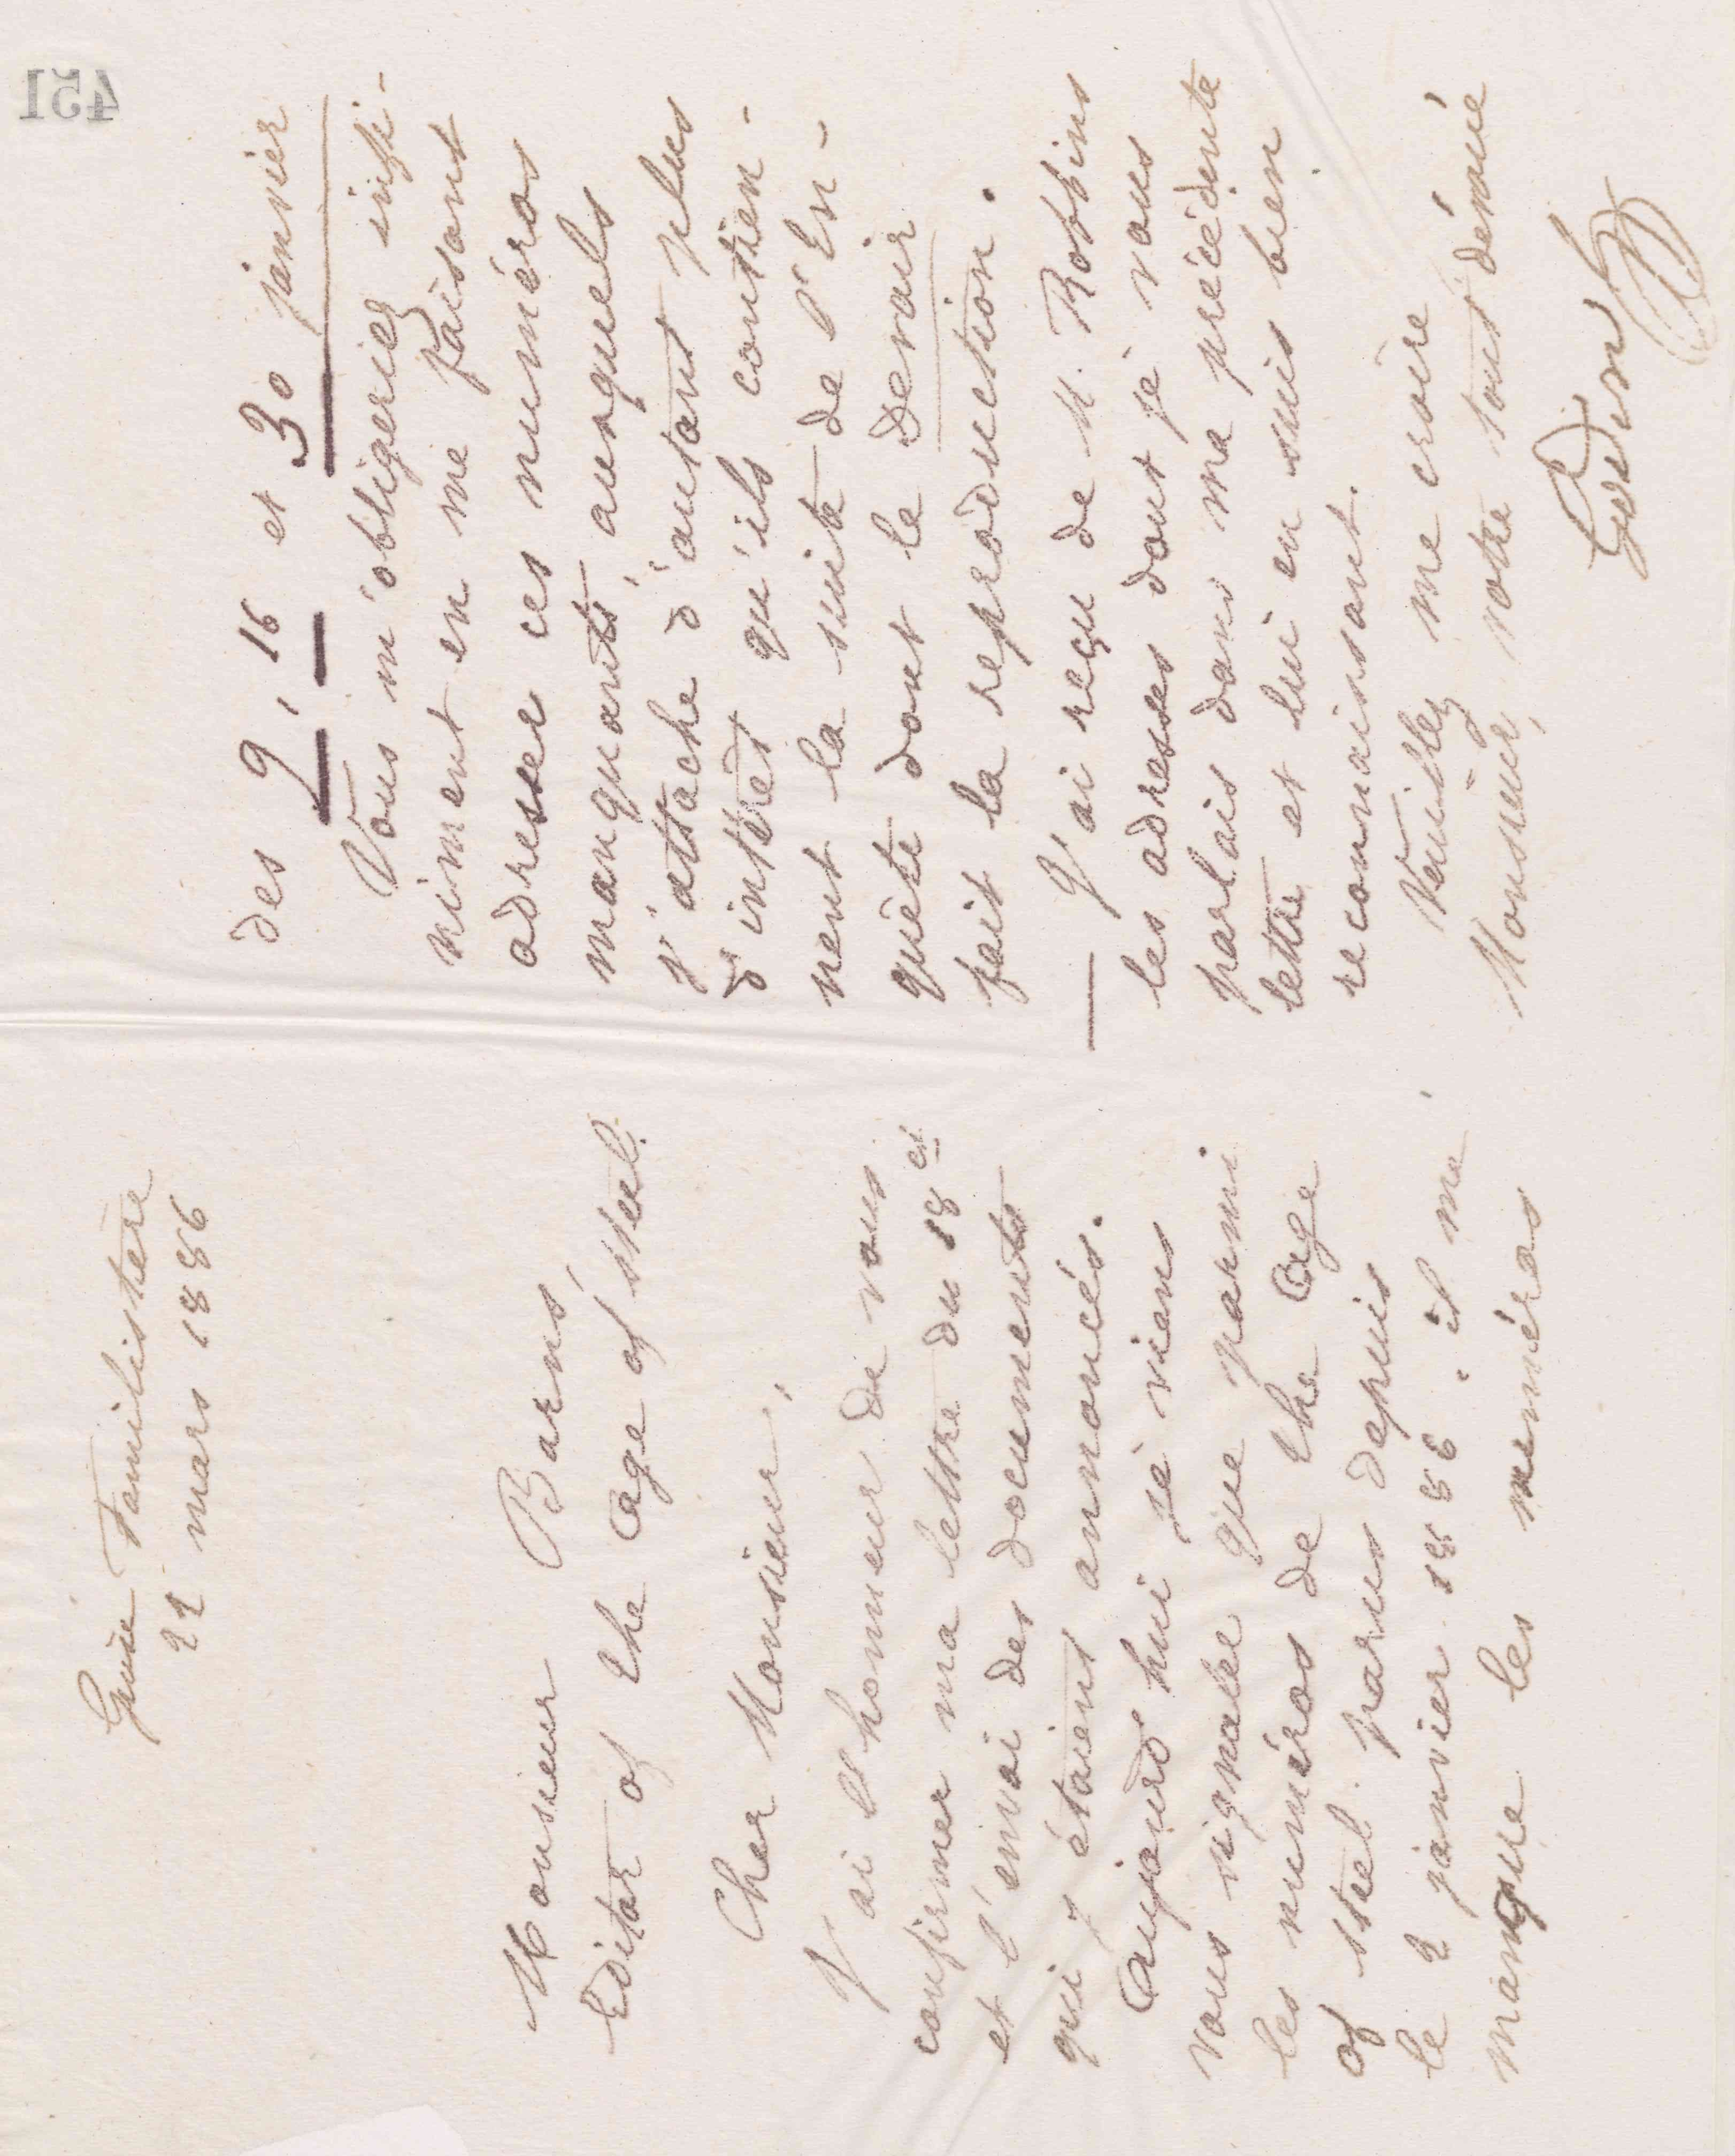 Guise Familistère
21 mars 1886
Monsieur Barns,
Editor of the Age of steel.
Cher Monsieur,
J'ai l'honneur de vous
confirmer ma lettre du 18 ct
et l'envoi des documents
qui y étaient annoncés.
Aujourd'hui je viens
vous signaler que parmi
les numéros de the Age
of steel parus depuis
le 2 janvier 1886, il me
manque les numéros
des 9, 16 et 30 janvier
Vous m'obligeriez infi-
niment en me faisant
adresser ces numéros
manquants, auxquels
j'attache d'autant plus
d'intérêt qu'ils contien-
nent la suite de l'En-
quête dont le Devoir
fait la reproduction.
— J'ai reçu de M. Robbins
les adresses dont je vous
parlais dans ma précédente
lettre et lui en suis bien
reconnaissant.
Veuillez me croire
Monsieur, votre tout dévoué
Godin
451